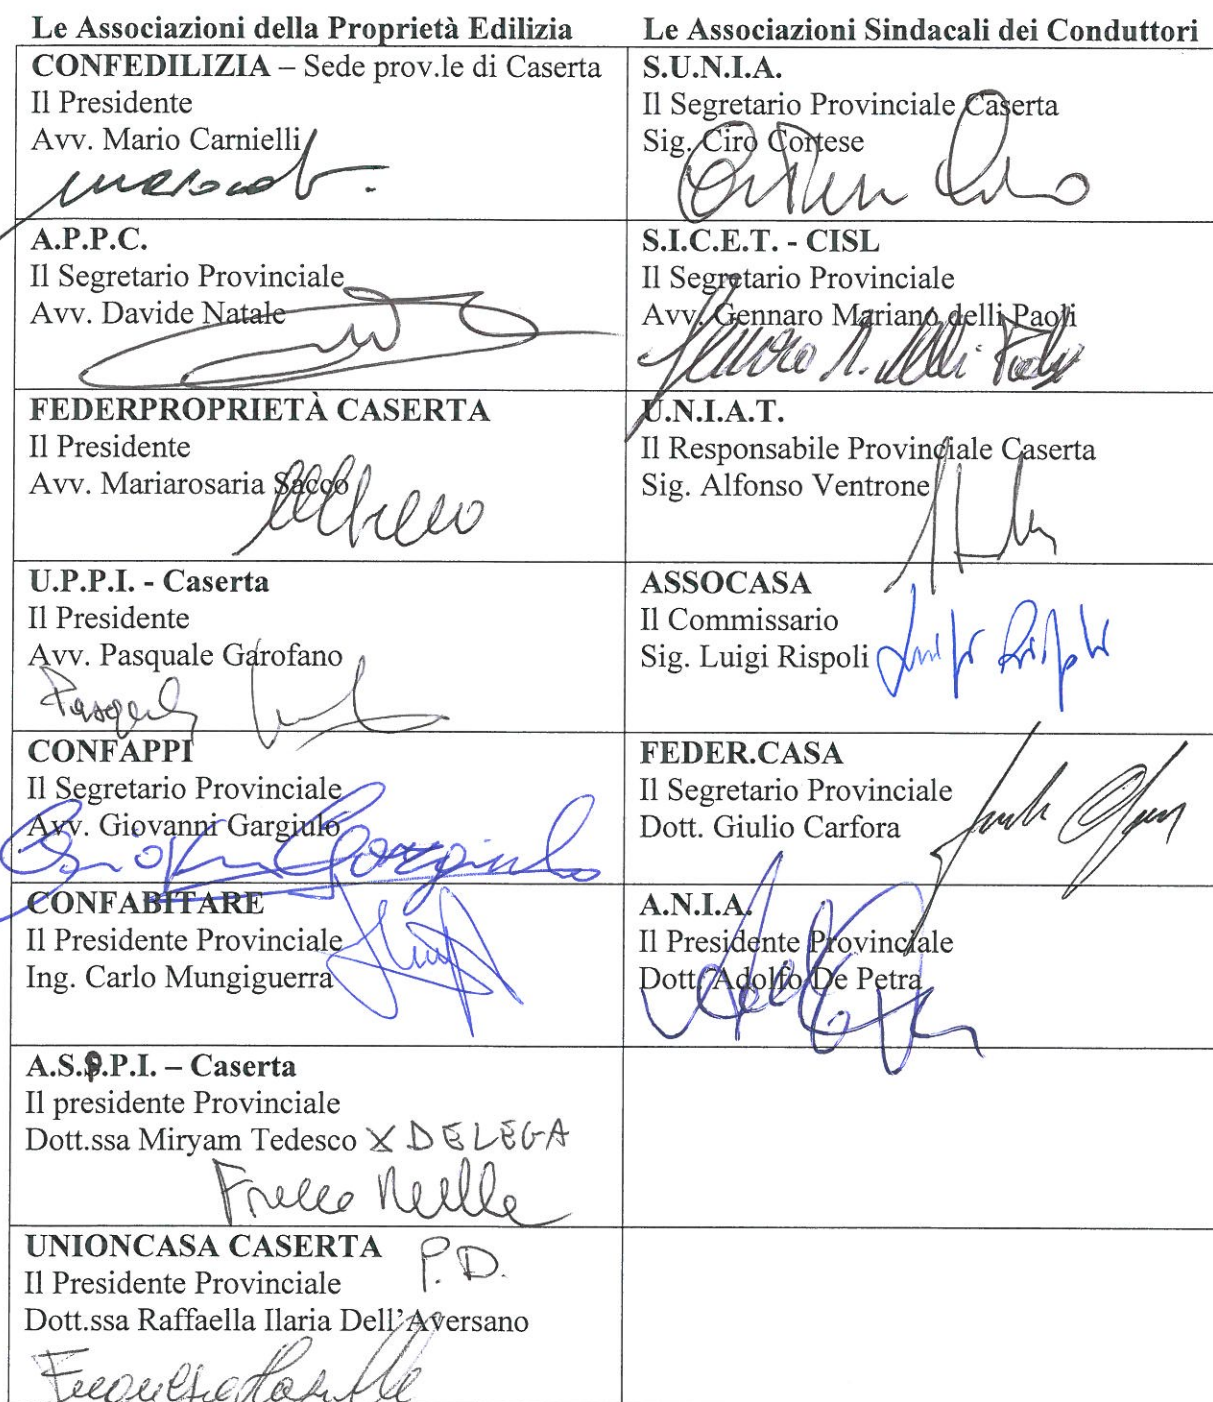 Le Associazioni della Proprietà Edilizia
Le Associazioni Sindacali dei Conduttori
CONFEDILIZIA – Sede prov.le di Caserta
Il Presidente
Avv. Mario Carnielli
S.U.N.I.A.
Il Segretario Provinciale Caserta
Sig. Ciro Cortese
A.P.P.C.
Il Segretario Provinciale
Avv. Davide Natale
S.I.C.E.T. - CISL
Il Segretario Provinciale
Avv. Gennaro Mariano delli Paoli
FEDERPROPRIETÀ CASERTA
Il Presidente
Avv. Mariarosaria Sacco
U.N.I.A.T.
Il Responsabile Provinciale Caserta
Sig. Alfonso Ventrone
U.P.P.I. - Caserta
Il Presidente
Avv. Pasquale Garofano
ASSOCASA
Il Commissario
Sig. Luigi Rispoli
Luigi Rispoli
CONFAPPI
Il Segretario Provinciale
Avv. Giovanni Gargiulo
Giovanni Gargiulo
FEDER.CASA
Il Segretario Provinciale
Dott. Giulio Carfora
CONFABITARE
Il Presidente Provinciale
Ing. Carlo Mungiguerra
A.N.I.A.
Il Presidente Provinciale
Dott. Adolfo De Petra
A.S.P.P.I. – Caserta
Il presidente Provinciale
Dott.ssa Miryam Tedesco X DELEGA
UNIONCASA CASERTA P.D.
Il Presidente Provinciale
Dott.ssa Raffaella Ilaria Dell'Aversano